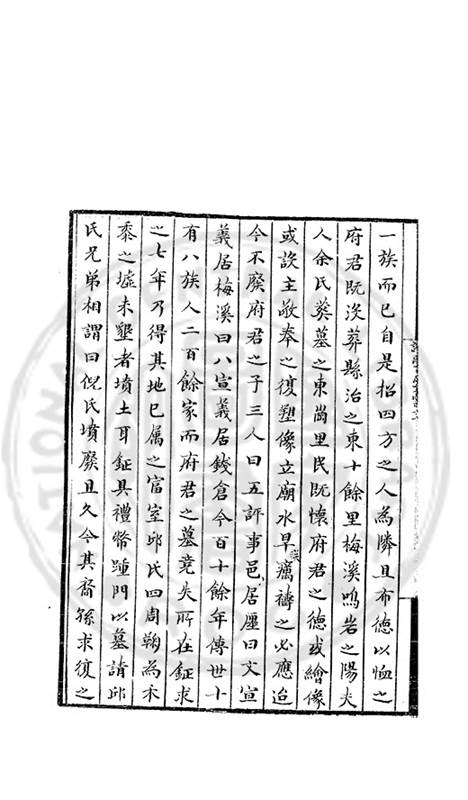 一族而已自是招四方之人為隣且布德以恤之
府君既沒葬縣治之東十餘里梅溪鳴岩之陽夫
人余氏葵墓之東崗里民既懷府君之德或繪像
或設主敬奉之復塑像立廟水旱癘禱之必應迨
今不廢府君之子三人曰五評事邑居厘曰文宣
義居梅溪曰八宣義居錢倉今百十餘年傳世十
有八族人二百餘家而府君之墓竟失所在鉦求
之七年乃得其地已属之富室邱氏四周鞠為禾
黍之墟未墾者墳土耳鉦具禮幣踵門以墓請邱
氏兄弟相謂曰倪氏墳廢且久今其裔孫求復之